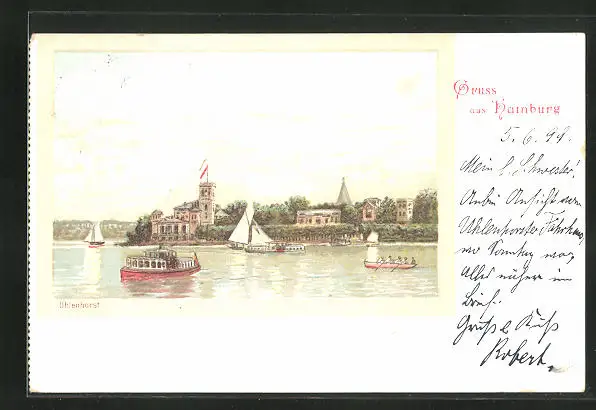 Gruss
aus Hamburg
5. 6. 99.
Mein l. Schwester!
Anbei Ansicht vom
Uhlenhorster Fährhaus,
wo Sonntag
Alles näher im
Brief.
Gruß & Kuß
Robert.
Uhlenhorst